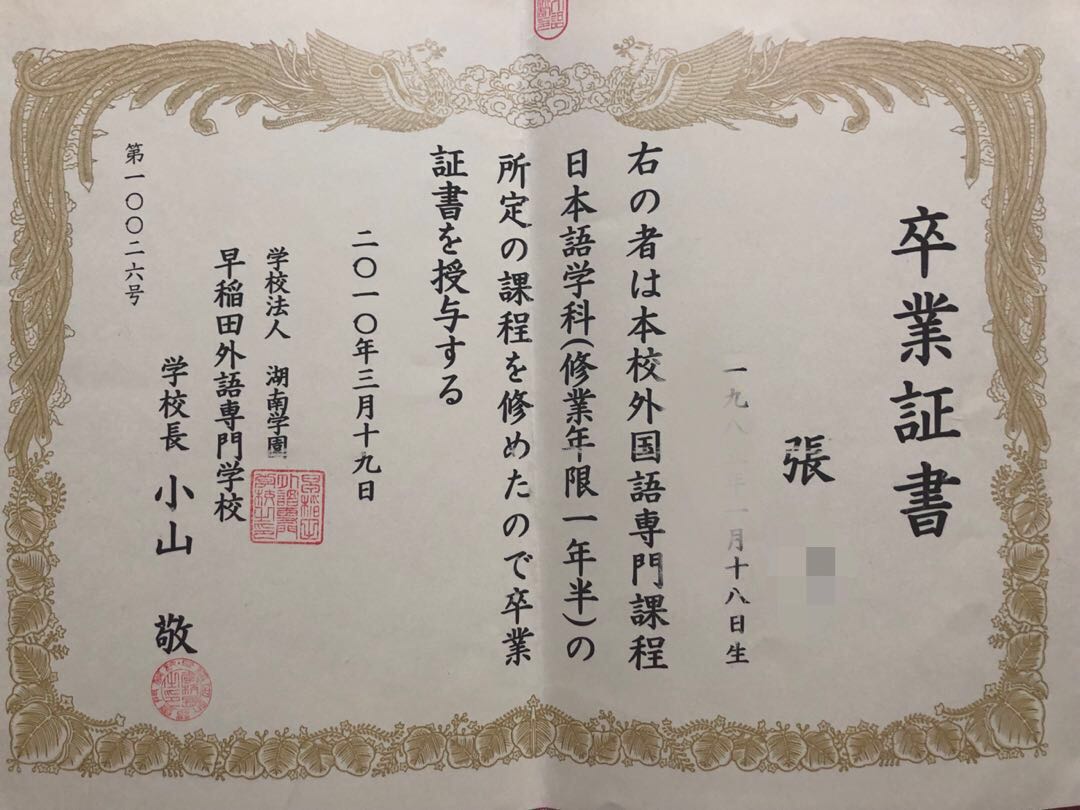 卒業証書
張
一九八 年一月十八日生
右の者は本校外国語専門課程
日本語学科(修業年限一年半)の
所定の課程を修めたので卒業
証書を授与する
二〇一〇年三月十九日
学校法人 湖南学園
早稲田外語専門学校
学校長 小山 敬
第一〇〇二六号